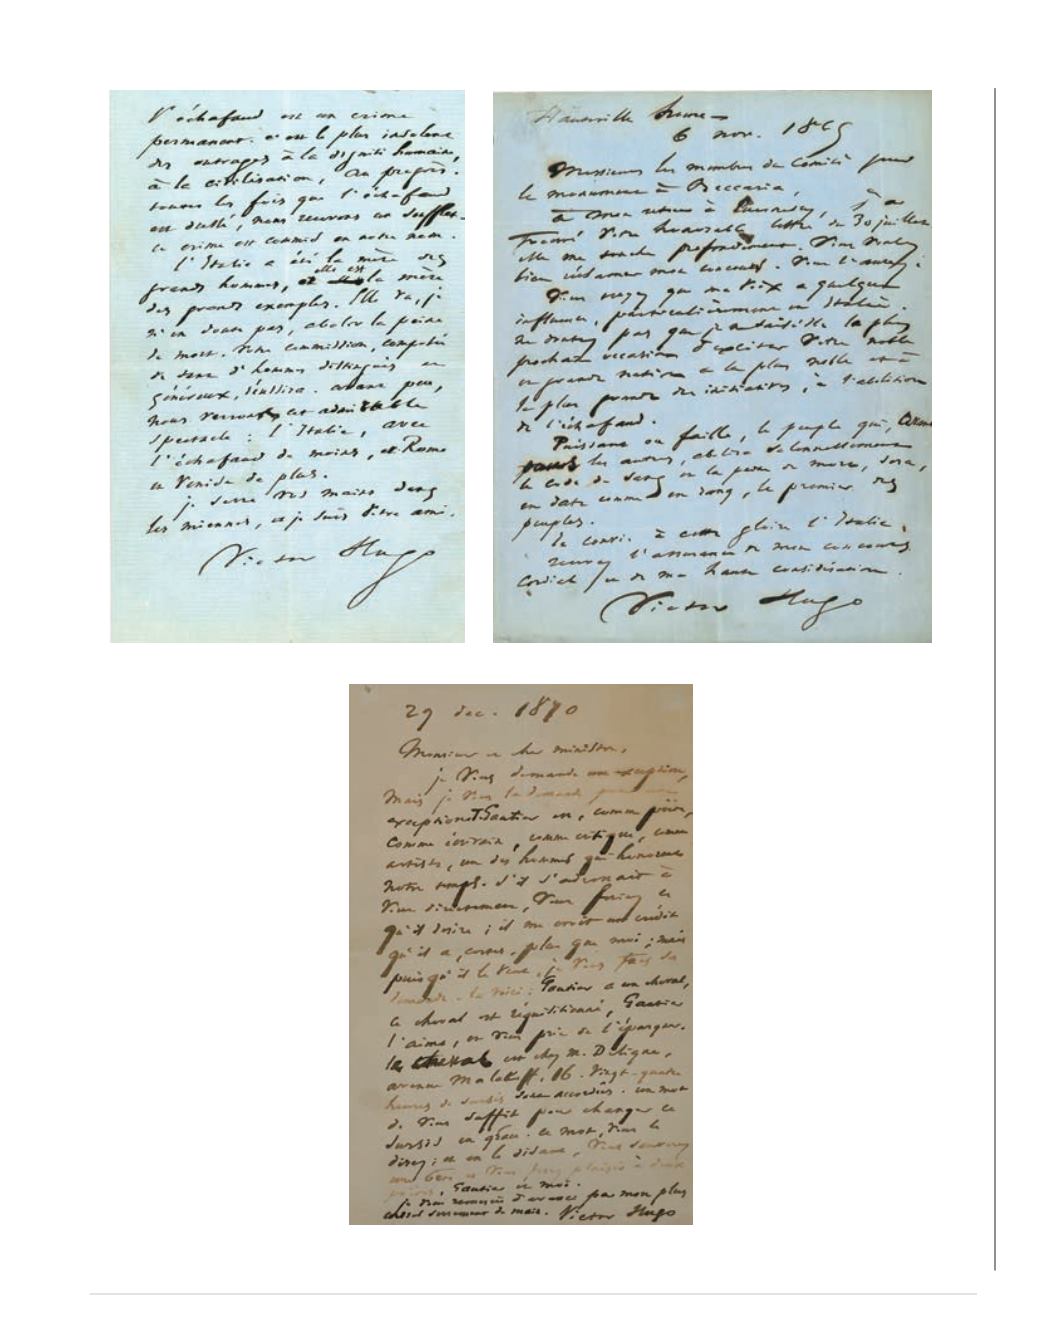 L'échafaud est un crime
permanent. c'est le plus insolent
des outrages à la dignité humaine,
à la civilisation, au progrès.
toutes les fois que l'échafaud
est dressé, nous recevons un soufflet.
ce crime est commis en notre nom.
l'Italie a été la mère des
grands hommes, et elle est la mère
des grands exemples. Elle va, je
n'en doute pas, abolir la peine
de mort. Votre commission, composée
de tant d'hommes distingués et
généreux, réussira. avant peu,
nous verrons cet admirable
spectacle : l'Italie, avec
l'échafaud de moins, et Rome
et Venise de plus.
je serre vos mains dans
les miennes, et je suis votre ami.
Victor Hugo
Hauteville house —
6 nov. 1865
Messieurs les membres du Comité pour
le monument à Beccaria,
à mon retour à Guernesey, j'ai
trouvé votre honorable lettre du 30 juillet
elle me touche profondément. Vous voulez
bien réclamer mon concours. Vous l'aurez.
Vous jugez que ma voix a quelque
influence, particulièrement en Italie.
ne doutez pas que je ne saisisse la plus
prochaine occasion d'exciter votre noble
et grande nation à la plus noble et à
la plus grande des initiatives, à l'abolition
de l'échafaud.
Puissant ou faible, le peuple qui, avant
tous les autres, abolira solennellement
le code de sang et la peine de mort, sera,
en date comme en rang, le premier des
peuples.
Je convie à cette gloire l'Italie.
recevez l'assurance de mon concours
cordial et de ma haute considération.
Victor Hugo
29 dec. 1870
Monsieur et cher ministre,
je vous demande une exception,
mais je vous la demande pour une
exception. T. Gautier est, comme poëte,
comme écrivain, comme critique, comme
artiste, un des hommes qui honorent
notre temps. S'il s'adressait à
vous directement, vous feriez ce
qu'il désire ; il me croit un crédit
qu'il a, certes, plus que moi ; mais
puisqu'il le veut, je vous fais sa
demande. la voici : Gautier a un cheval,
ce cheval est réquisitionné, Gautier
l'aime, et vous prie de l'épargner.
le cheval est chez M. Deligne,
avenue Malakoff, 16. Vingt-quatre
heures de sursis sont accordées. un mot
de vous suffit pour changer ce
sursis en grâce. ce mot, vous le
direz ; et en le disant, vous sauverez
une bête et vous ferez plaisir à deux
poëtes, Gautier et moi.
je vous remercie d'avance par mon plus
cordial serrement de main. Victor Hugo